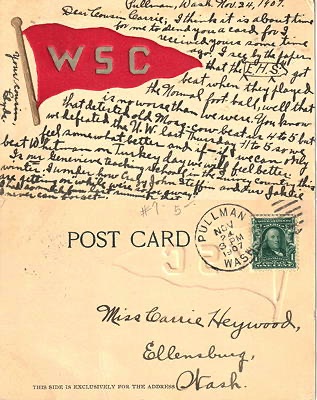 Pullman, Wash. Nov. 24, 1907.
Dear Cousin Carrie, I think it is about time
for me to send you a card for I
received yours some time
I see by the paper
that the E.H.S. got
beat, when they played
the Normal foot ball, well that
is no worse than we were. You know
that detested old Moscow beat us 4 to 5 but
we defeated the U.W. last Thursday 11 to 5 so we
feel somewhat better and if we can only
beat Whitman on Turkey day us will feel better
Is Genevieve teaching school in the Co. this
winter. I wonder how John
Your cousin
WSC
POST CARD
PULLMAN
NOV
24
3 PM
1907
WASH.
Miss Carrie Heywood,
Ellensburg,
Wash.
THIS SIDE IS EXCLUSIVELY FOR THE ADDRESS